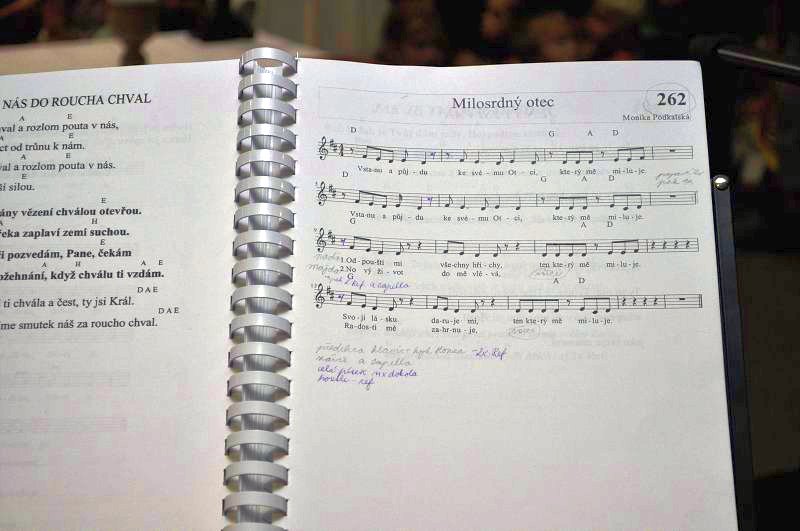 NÁS DO ROUCHA CHVAL
A E
val a rozlom pouta v nás,
A E
ct od trůnu k nám.
A E
val a rozlom pouta v nás.
A E
ší silou.
E
ány vězení chválou otevřou.
A H
řeka zaplaví zemi suchou.
A E
ři pozvedám, Pane, čekám
A H A E
ožehnání, když chválu ti vzdám.
D A E
í ti chvála a čest, ty jsi Král.
D A E
íme smutek náš za roucho chval.
Milosrdný otec
262
Monika Podkalská
D G A D
Vsta-nu a půj-du ke své-mu Ot-ci, kte-rý mě mi-lu-je.
D G A D
Vsta-nu a půj-du ke své-mu Ot-ci, kte-rý mě mi-lu-je.
G A D
1.Od-pou-ští mi vše-chny hří-chy, ten kte-rý mě mi-lu-je.
2.No-vý ži-vot do mě vlé-vá,
Ref a capella
G A D
Svo-ji lá-sku da-ru-je mi, ten kte-rý mě mi-lu-je.
Ra-dos-tí mě za-hr-nu-je,
předehra klavír + 2x Ref
a capella
celá píseň nx dokola
konec - ref